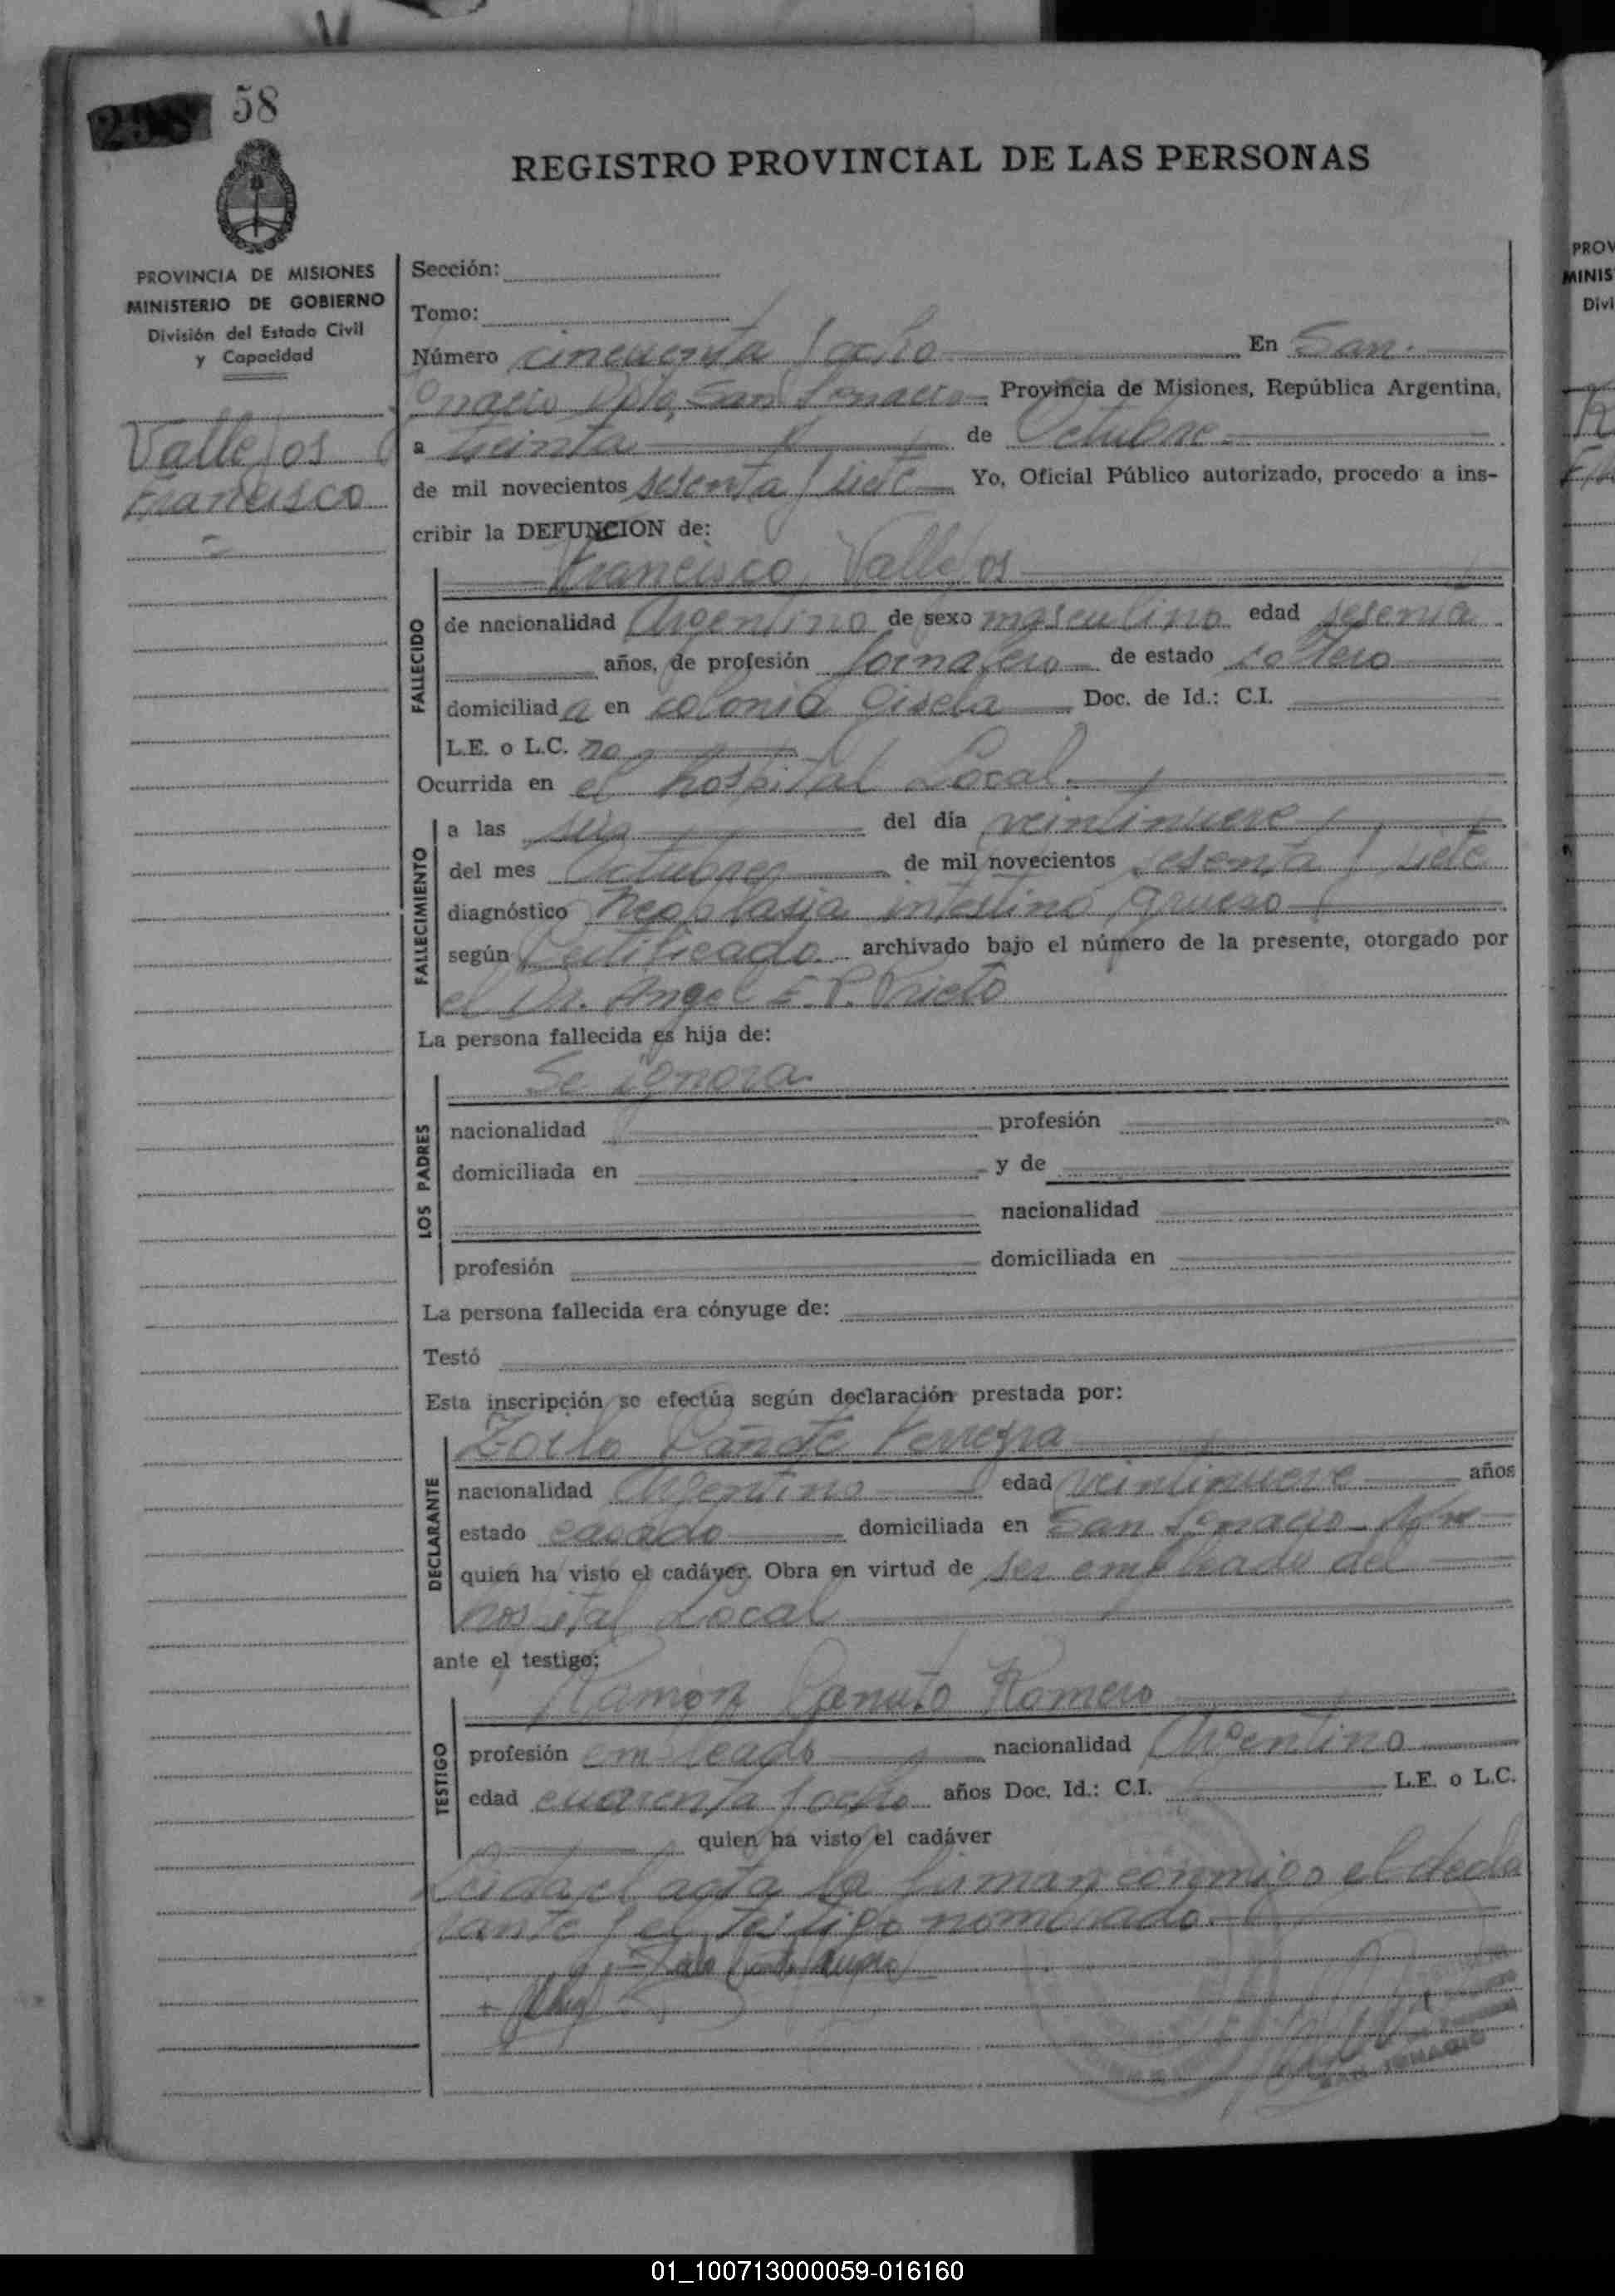 238 58
REGISTRO PROVINCIAL DE LAS PERSONAS
PROVINCIA DE MISIONES
MINISTERIO DE GOBIERNO
División del Estado Civil
y Capacidad
Vallejos
Francisco
Sección:
Tomo:
Número cincuenta y ocho En San
Ignacio Dpto. San Ignacio Provincia de Misiones, República Argentina,
a treinta de Octubre
de mil novecientos sesenta y siete Yo, Oficial Público autorizado, procedo a ins-
cribir la DEFUNCION de:
Francisco Vallejos
FALLECIDO
de nacionalidad Argentino de sexo masculino edad sesenta
años, de profesión Jornalero de estado soltero
domiciliada en colonia Gisela Doc. de Id.: C.I.
L.E. o L.C. no
Ocurrida en el hospital Local
FALLECIMIENTO
a las seis del día veintinueve
del mes Octubre de mil novecientos sesenta y siete
diagnóstico Neoplasia intestino grueso
según Certificado archivado bajo el número de la presente, otorgado por
el Dr. Angel E. P. Prieto
La persona fallecida es hija de:
LOS PADRES
Se ignora
nacionalidad profesión
domiciliada en y de
nacionalidad
profesión domiciliada en
La persona fallecida era cónyuge de:
Testó
Esta inscripción se efectúa según declaración prestada por:
DECLARANTE
Zoilo Cañete Ferreyra
nacionalidad Argentino edad veintinueve años
estado casado domiciliada en San Ignacio
quien ha visto el cadáver. Obra en virtud de ser empleado del
hospital Local
ante el testigo:
TESTIGO
Ramón Canuto Romero
profesión empleado nacionalidad Argentino
edad cuarenta y ocho años Doc. Id.: C.I. L.E. o L.C.
quien ha visto el cadáver
Leida el acta la firman conmigo el decla
rante y el testigo nombrado.
SAN IGNACIO
PROV
MINIS
Divi
01_100713000059-016160